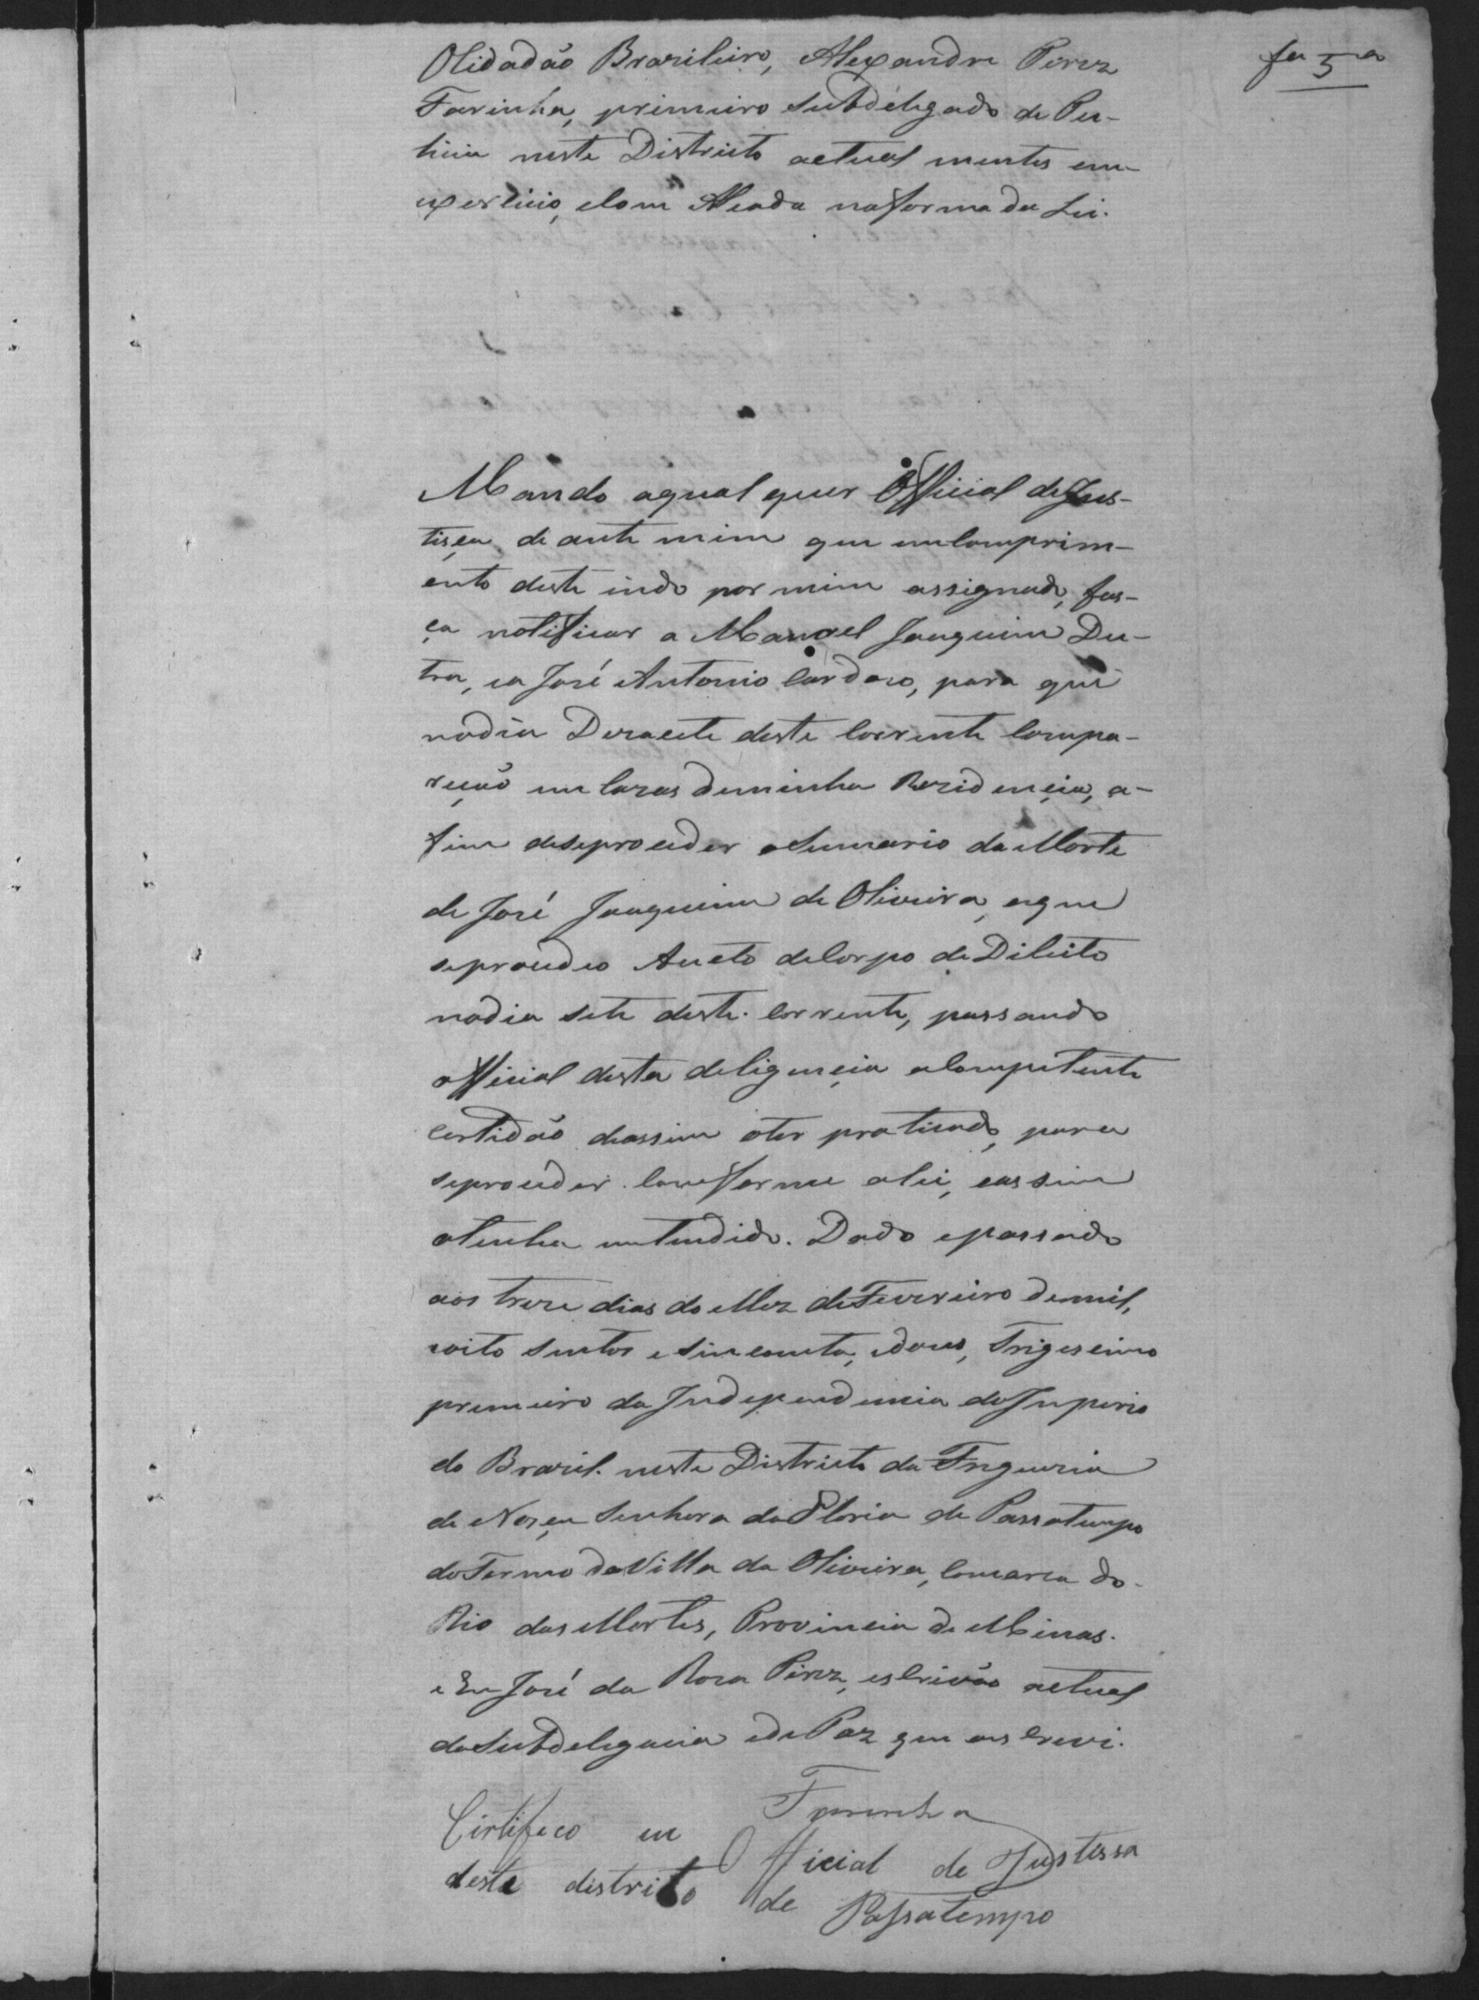 fu 5 a
Cidadão Brazileiro, Alexandre Pirez
Farinha, primeiro subdelegado de Pu-
licia neste Districto actual mentes em
experlicio, com Alcada na forma da Lei.
Mando aqual quer Official de Jus-
tisça de ante mim que em comprim-
ento deste indo por mim assignado, fas-
ça notificar a Manoel Juaquim Du-
tra, ea José Antonio Cardozo, para que
nodia Dezacete deste Corrente Compa-
reção em Cazas deminha Rezidencia, a-
fim deseproceder oSumario da Morte
de José Juaquim de Oliveira, eque
seprocedeo Aucto de Corpo de Dilicto
nodia sete deste Corrente, passando
official desta deligencia a Competente
Certidão deassim oter praticado, para
seproceder Conforme alei, eassim
otenha entendido. Dado epassado
aos treze dias do Mez de Fevereiro demil,
eoito sentos e sincoenta, edous, Trigesimo
primeiro da Independencia do Imperio
do Brazil. neste Districto da Freguezia
de Noşça Senhora da Gloria de Passatempo
do Termo da Villa da Oliveira, Comarca do
Rio das Mortes, Provincia de Minas.
e Eu José da Roza Pirez, escrivão actual
da Subdelegacia ede Paz que oescrevi.
Farinha
Cirtifico eu Official de Justissa
deste distrito de Passatempo